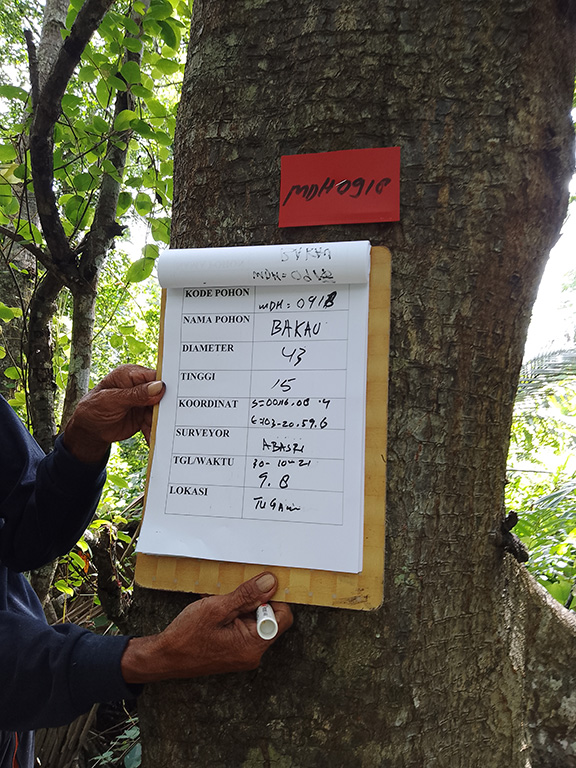 MDH0918
BAKAU
MDH = 09
KODE POHON MDH = 0918
NAMA POHON BAKAU
DIAMETER 43
TINGGI 15
KOORDINAT S=00.16.08.4
E=103-20.59.6
SURVEYOR ABASRI
TGL/WAKTU 30-10-21
9.8
LOKASI